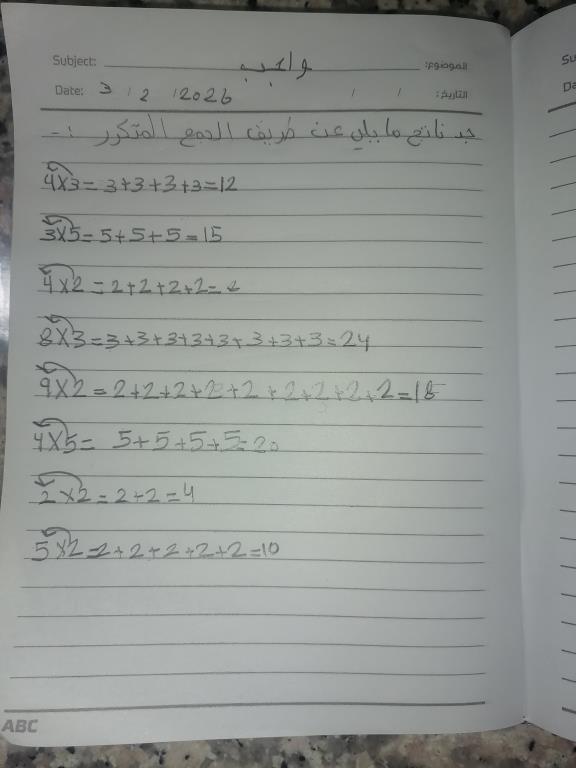 Subject: واجب الموضوع:
Date: 3 / 2 / 2026 / / التاريخ:
جد ناتج ما يلي عن طريق الجمع المتكرر :-
4×3=3+3+3+3=12
3×5=5+5+5=15
4×2=2+2+2+2=
8×3=3+3+3+3+3+3+3+3=24
9×2=2+2+2+2+2+2+2+2+2=18
4×5= 5+5+5+5=20
2×2=2+2=4
5×2=2+2+2+2+2=10
ABC
Su
Da